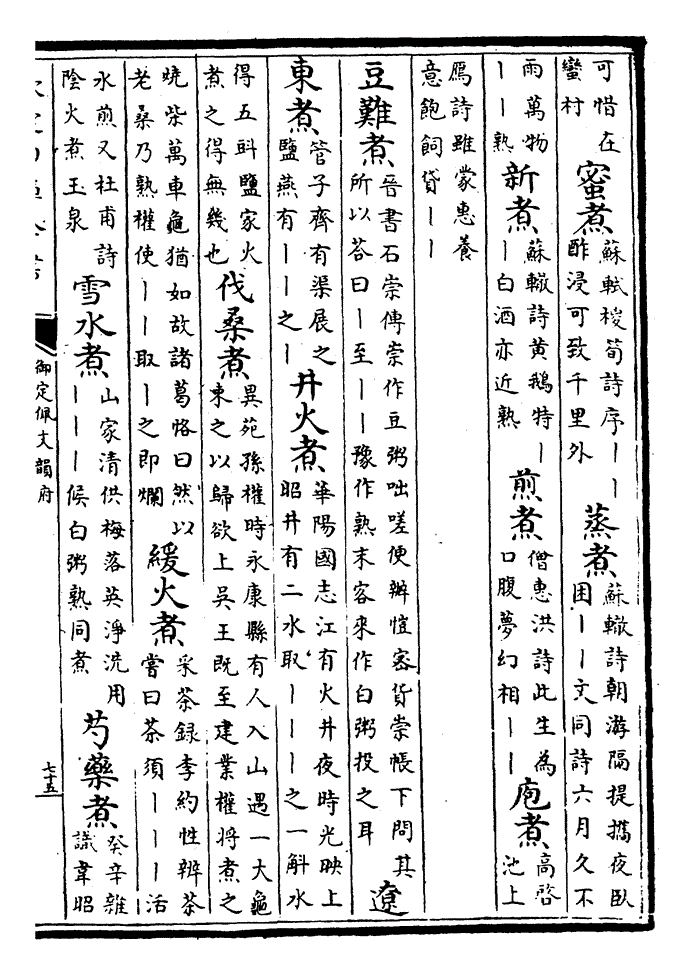 可惜在
蠻村
蜜煮
蘇軾椶筍詩序丨丨
酢浸可致千里外
蒸煮
蘇轍詩朝游隔提攜夜臥
困丨丨文同詩六月久不
雨萬物
丨丨熟
新煮
蘇轍詩黄鵝特丨
丨白酒亦近熟
煎煮
僧惠洪詩此生為
口腹夢幻相丨丨
庖煮
高啓
池上
鴈詩雖蒙惠養
意飽飼貸丨丨
豆難煮
晉書石崇傳崇作豆粥咄嗟便辦愷密貨崇帳下問其
所以荅曰丨至丨丨豫作熟末客來作白粥投之耳
遼
東煮
管子齊有渠展之
鹽燕有丨丨之丨
井火煮
華陽國志江有火井夜時光映上
昭井有二水取丨丨丨之一斛水
得五㪷鹽家火
煮之得無幾也
伐桑煮
異苑孫權時永康縣有人入山遇一大龜
束之以歸欲上吳王既至建業權將煮之
燒柴萬車龜猶如故諸葛恪曰然以
老桑乃熟權使丨丨取丨之即爛
緩火煮
采茶録李約性辨茶
嘗曰茶須丨丨丨活
水煎又杜甫詩
陰火煮玉泉
雪水煮
山家清供梅落英淨洗用
丨丨丨候白粥熟同煮
芍藥煮
癸辛雜
議韋昭
御定佩文韻府
七十五